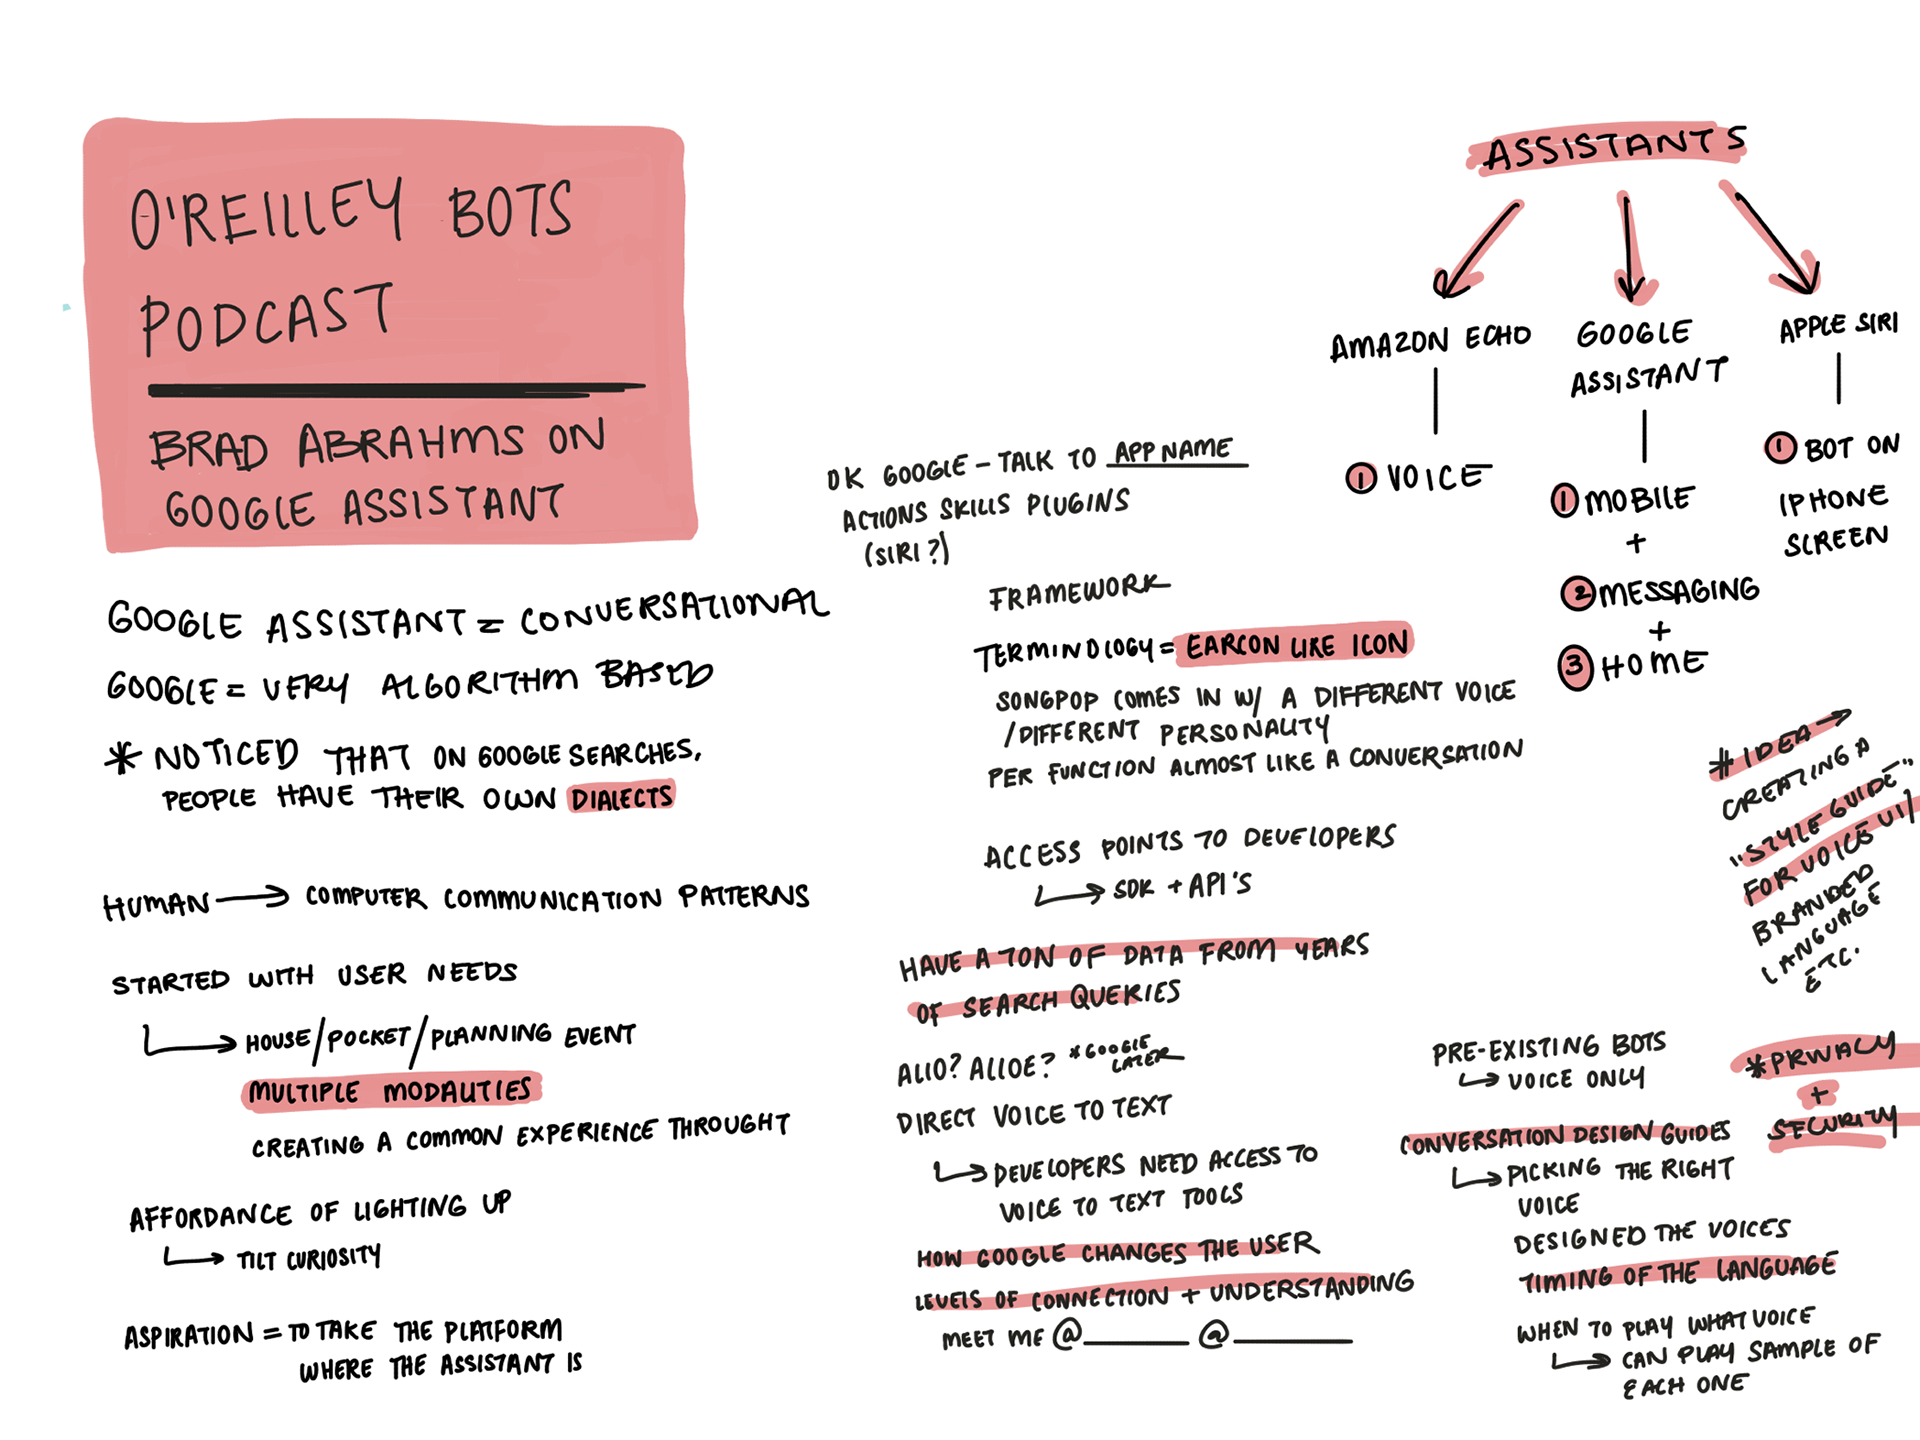 O'REILLEY BOTS
PODCAST
BRAD ABRAHMS ON
GOOGLE ASSISTANT
GOOGLE ASSISTANT = CONVERSATIONAL
GOOGLE = VERY ALGORITHM BASED
* NOTICED THAT ON GOOGLE SEARCHES,
PEOPLE HAVE THEIR OWN DIALECTS
HUMAN → COMPUTER COMMUNICATION PATTERNS
STARTED WITH USER NEEDS
→ HOUSE/POCKET/PLANNING EVENT
MULTIPLE MODALITIES
CREATING A COMMON EXPERIENCE THROUGHT
AFFORDANCE OF LIGHTING UP
→ TILT CURIOSITY
ASPIRATION = TO TAKE THE PLATFORM
WHERE THE ASSISTANT IS
OK GOOGLE - TALK TO APP NAME
ACTIONS SKILLS PLUGINS
(SIRI?)
FRAMEWORK
TERMINOLOGY = EARCON LIKE ICON
SONGPOP COMES IN W/ A DIFFERENT VOICE
/DIFFERENT PERSONALITY
PER FUNCTION ALMOST LIKE A CONVERSATION
ACCESS POINTS TO DEVELOPERS
→ SDK + API'S
HAVE A TON OF DATA FROM YEARS
OF SEARCH QUERIES
ALLO? ALLOE? *GOOGLE
LATER
DIRECT VOICE TO TEXT
→ DEVELOPERS NEED ACCESS TO
VOICE TO TEXT TOOLS
HOW GOOGLE CHANGES THE USER
LEVELS OF CONNECTION + UNDERSTANDING
MEET ME @______ @______
ASSISTANTS
AMAZON ECHO
1 VOICE
GOOGLE
ASSISTANT
1 MOBILE
+
2 MESSAGING
+
3 HOME
APPLE SIRI
1 BOT ON
IPHONE
SCREEN
# IDEA →
CREATING A
"STYLE GUIDE"
FOR VOICE UI/
BRANDED
LANGUAGE
ETC.
PRE-EXISTING BOTS
→ VOICE ONLY
*PRIVACY
+
SECURITY
CONVERSATION DESIGN GUIDES
→ PICKING THE RIGHT
VOICE
DESIGNED THE VOICES
TIMING OF THE LANGUAGE
WHEN TO PLAY WHAT VOICE
→ CAN PLAY SAMPLE OF
EACH ONE